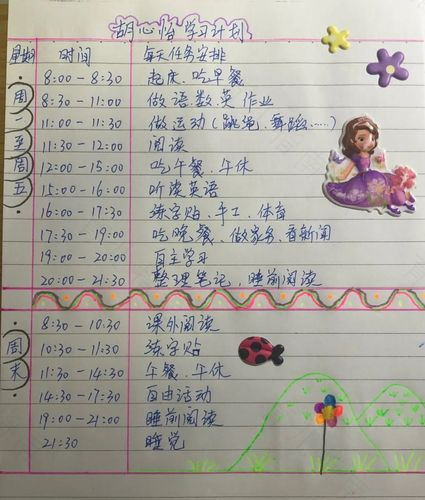 胡心怡学习计划
星期 时间 每天任务安排
8:00-8:30 起床、吃早餐
8:30-11:00 做语.数.英作业
11:00-11:30 做运动(跳绳、舞蹈……)
11:30-12:00 阅读
12:00-15:00 吃午餐、午休
15:00-16:00 听读英语
16:00-17:30 练字贴、手工、体育
17:30-19:00 吃晚餐、做家务、看新闻
19:00-20:00 自主学习
20:00-21:30 整理笔记,睡前阅读
周一至周五
8:30-10:30 课外阅读
10:30-11:30 练字贴
11:30-14:30 午餐、午休
14:30-17:30 自由活动
19:00-21:00 睡前阅读
21:30 睡觉
周末